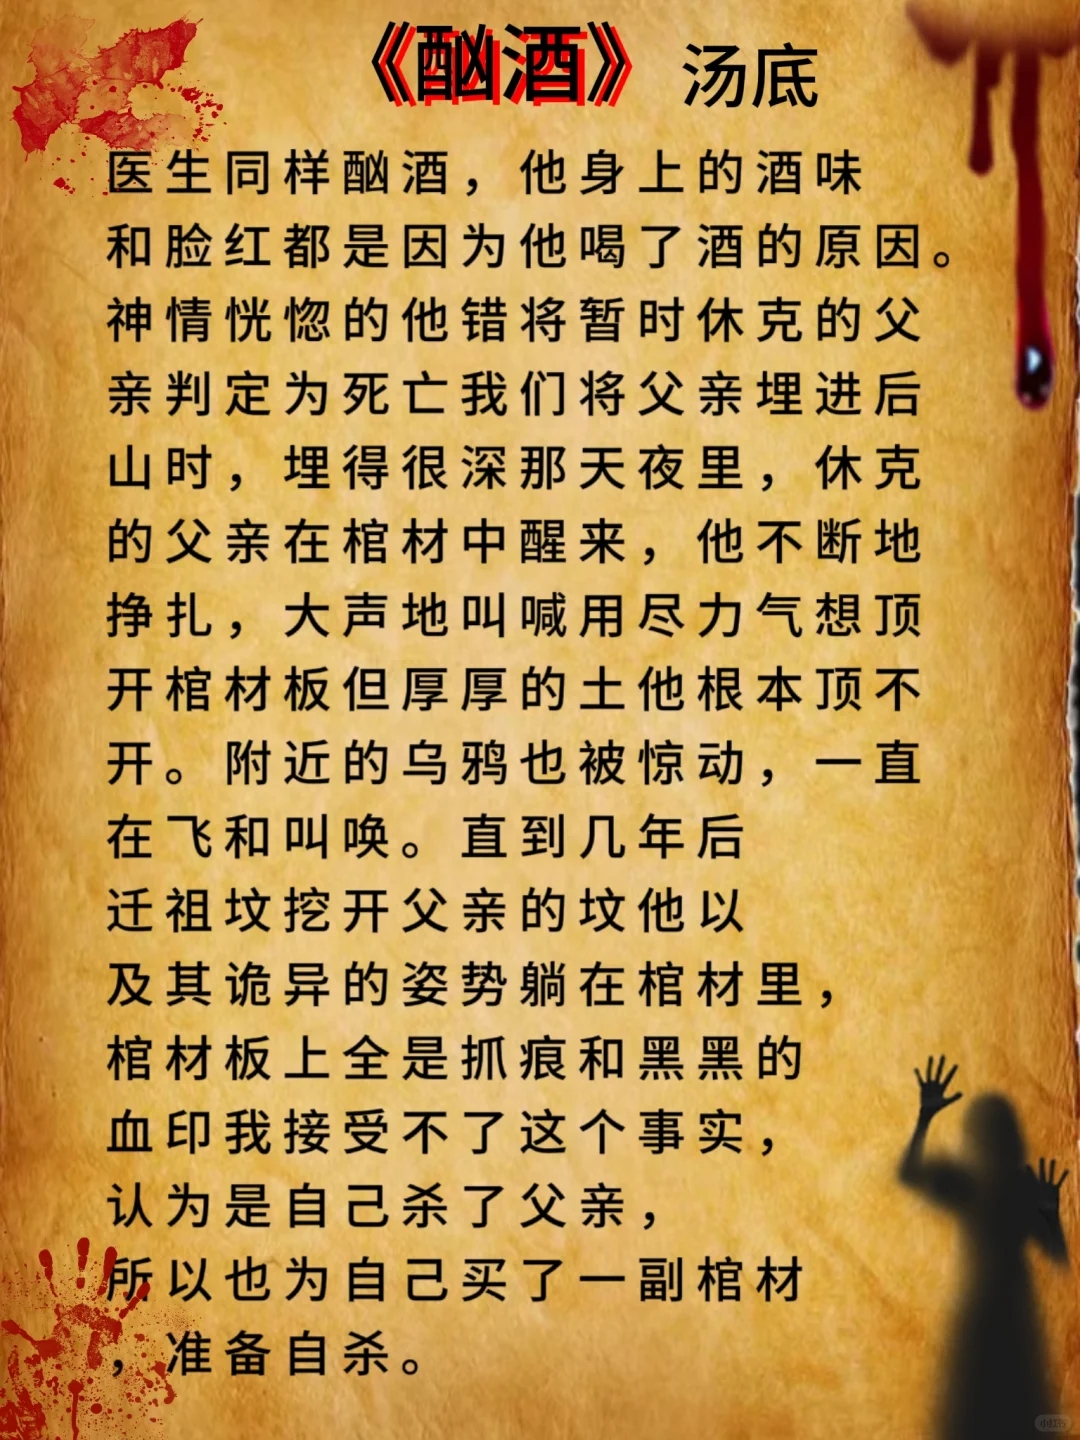 《酗酒》 汤底
医生同样酗酒，他身上的酒味
和脸红都是因为他喝了酒的原因。
神情恍惚的他错将暂时休克的父
亲判定为死亡我们将父亲埋进后
山时，埋得很深那天夜里，休克
的父亲在棺材中醒来，他不断地
挣扎，大声地叫喊用尽力气想顶
开棺材板但厚厚的土他根本顶不
开。附近的乌鸦也被惊动，一直
在飞和叫唤。直到几年后
迁祖坟挖开父亲的坟他以
及其诡异的姿势躺在棺材里，
棺材板上全是抓痕和黑黑的
血印我接受不了这个事实，
认为是自己杀了父亲，
所以也为自己买了一副棺材
，准备自杀。
小红书